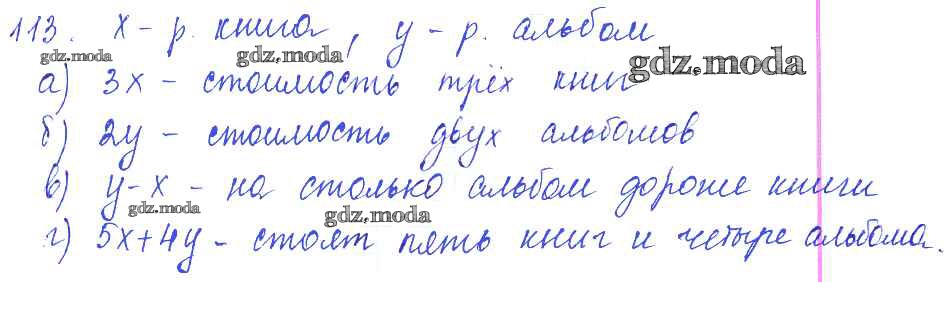 113. х – р. книга, у – р. альбом
gdz.moda gdz.moda gdz.moda
а) 3х – стоимость трёх книг
б) 2у – стоимость двух альбомов
в) у-х – на столько альбом дороже книги
gdz.moda gdz.moda
г) 5х+4у – стоят пять книг и четыре альбома.